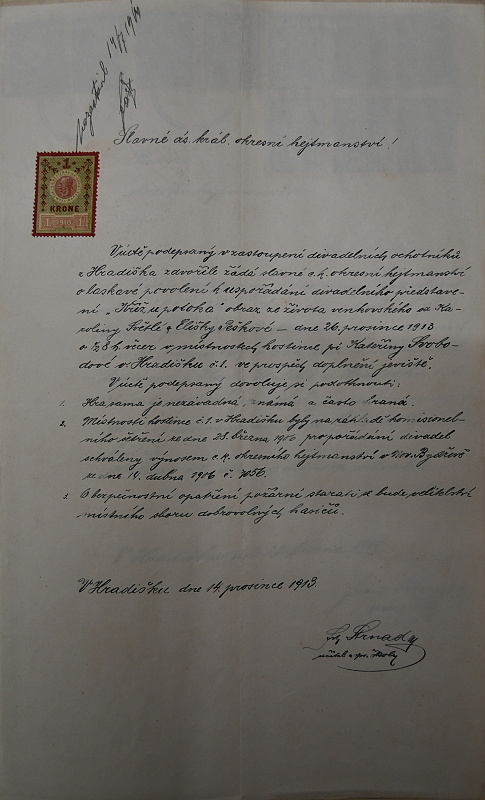 14/I 1914
Slavné cís. král. okresní hejtmanství!
1
KRONE
1 1910 1
V úctě podepsaný v zastoupení divadelních ochotníků
z Hradiška zdvořile žádá slavné c. k. okresní hejtmanství
o laskavé povolení k uspořádání divadelního představe-
ní „Kříž u potoka" obraz ze života venkovského od Ka-
roliny Světlé a Elišky Peškové – dne 26. prosince 1913
o ½ 8 h. večer v místnostech hostince pí Kateřiny Svobo-
dové v Hradišku č. 1. ve prospěch doplnění jeviště.
V úctě podepsaný dovoluje si podotknouti:
1. Hra sama je nezávadná známá a často hraná.
2. Místnosti hostince č. 1. v Hradišku byly na základě komisionel-
ního šetření ze dne 23. března 1906 pro pořádání divadel
schváleny výnosem c. k. okresního hejtmanství v Nov. Bydžově
ze dne 14. dubna 1906 č.
3. O bezpečnostní opatření požární starati se bude velitelství
místního sboru dobrovolných hasičů.
V Hradišku dne 14. prosince 1913.
Strnady
učitel a školy